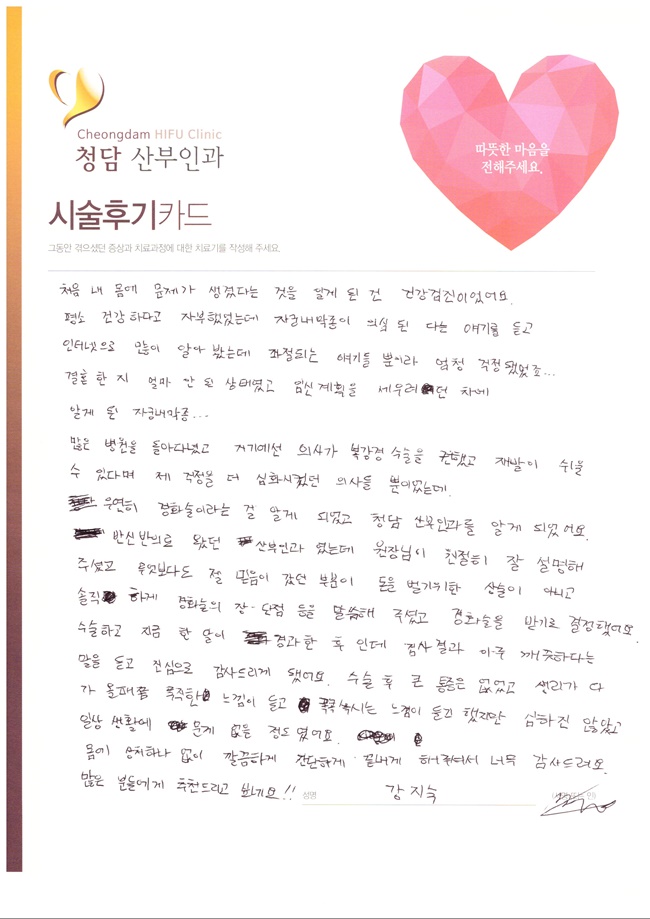 Cheongdam HIFU Clinic
청담 산부인과
따뜻한 마음을
전해주세요.
시술후기카드
그동안 겪으셨던 증상과 치료과정에 대한 치료기를 작성해 주세요.
처음 내 몸에 문제가 생겼다는 것을 알게 된 건 건강검진이었어요.
평소 건강하다고 자부했었는데 자궁내막종이 의심 된 다는 얘기를 듣고
인터넷으로 많이 알아 봤는데 좌절되는 얘기들 뿐이라 엄청 걱정 됐었죠...
결혼 한 지 얼마 안 된 상태였고 임신계획을 세우려던 차에
알게 된 자궁내막종...
많은 병원을 돌아다녔고 거기에선 의사가 복강경 수술을 권했고 재발이 쉬울
수 있다며 제 걱정을 더 심화시켰던 의사들 뿐이었는데.
우연히 경화술이라는 걸 알게 되었고 청담 산부인과를 알게 되었어요.
반신반의로 왔던 산부인과 였는데 원장님이 친절히 잘 설명해
주셨고 무엇보다도 젤 믿음이 갔던 부분이 돈을 벌기위한 상술이 아니고
솔직 하게 경화술의 장·단점 등을 말씀해 주셨고 경화술을 받기로 결정했어요.
수술하고 지금 한 달이 경과한 후 인데 검사결과 아주 깨끗하다는
말을 듣고 진심으로 감사드리게 됐어요. 수술 후 큰 통증은 없었고 생리가 다
가 올때쯤 묵직한 느낌이 들고 콕콕 쑤시는 느낌이 들긴 했지만 심하진 않았고
일상 생활에 문제 없을 정도 였어요.
몸에 상처하나 없이 깔끔하게 간단하게 끝내게 해주셔서 너무 감사드려요.
많은 분들에게 추천드리고 !! 성명 강지숙